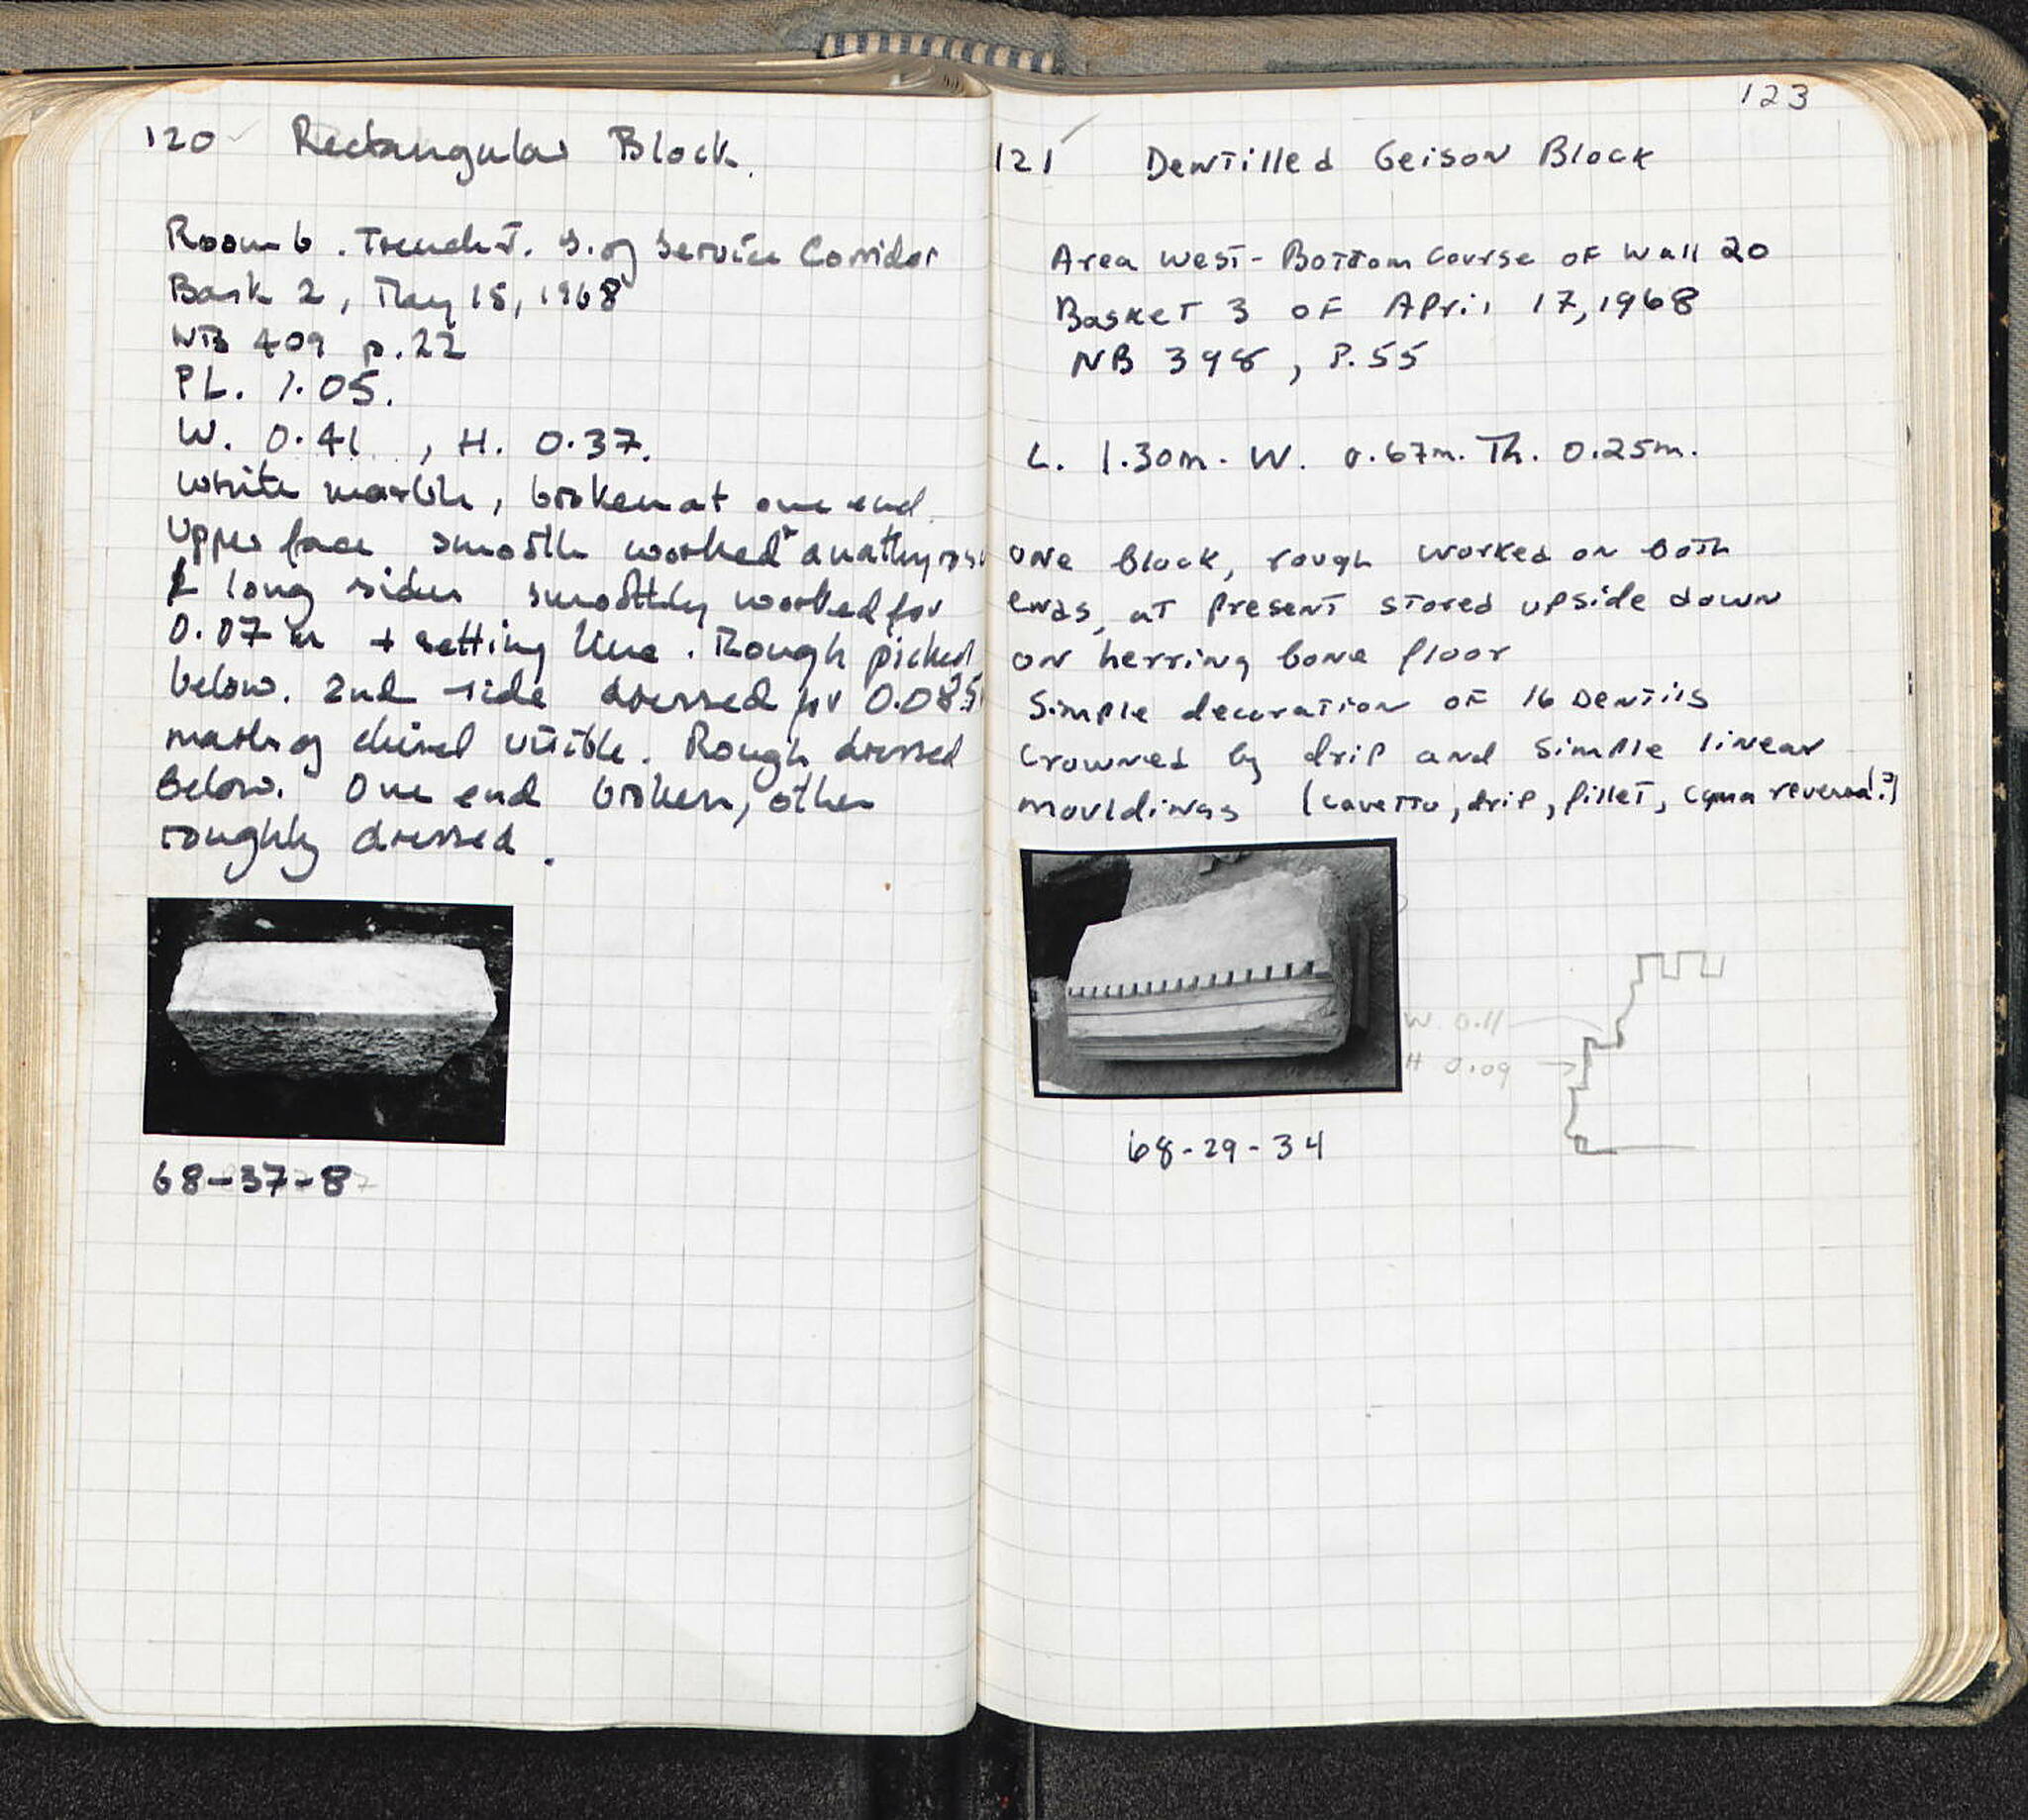 120 Rectangular Block.
Room 6. Trench J. S. of Service Corridor
Bask 2, May 15, 1968
NB 409 p.22
PL. 1.05.
W. 0.41 , H. 0.37.
White marble, broken at one end.
Upper face smooth worked anathyrosis
long sides smoothly worked for
0.07 m + setting line. Rough picked
below. 2nd side dressed for 0.085
marks of chisel visible. Rough dressed
below. One end broken, other
roughly dressed.
68-37-8
123
121 Dentilled Geison Block
Area West - Bottom Course of Wall 20
Basket 3 of April 17, 1968
NB 398, P.55
L. 1.30m. W. 0.67m. Th. 0.25m.
One block, rough worked on both
ends, at present stored upside down
on herring bone floor
Simple decoration of 16 Dentils
crowned by drip and simple linear
mouldings (cavetto, drip, fillet, cyma reversa?)
W 0.11
H 0.09
68-29-34